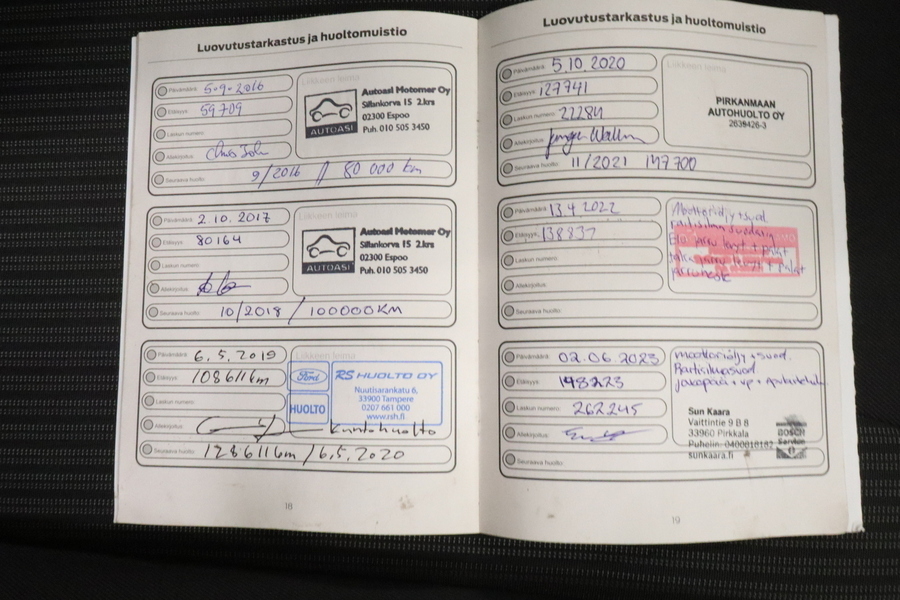 Luovutustarkastus ja huoltomuistio
Päivämäärä: 5.9.2016
Etäisyys: 59709
Laskun numero:
Allekirjoitus:
Seuraava huolto: 9/2016 // 80 000 km
Liikkeen leima
Autoasi Motomer Oy
Sillankorva 15 2.krs
02300 Espoo
Puh. 010 505 3450
AUTOASI
Päivämäärä: 2.10.2017
Etäisyys: 80164
Laskun numero:
Allekirjoitus:
Seuraava huolto: 10/2018 / 100000KM
Liikkeen leima
Autoasi Motomer Oy
Sillankorva 15 2.krs
02300 Espoo
Puh. 010 505 3450
AUTOASI
Päivämäärä: 6.5.2019
Etäisyys: 108611km
Laskun numero:
Allekirjoitus: Kuntohuolto
Seuraava huolto: 128611km / 6.5.2020
Liikkeen leima
Ford
HUOLTO
RS HUOLTO OY
Nuutisarankatu 6,
33900 Tampere
0207 661 000
www.rsh.fi
18
Luovutustarkastus ja huoltomuistio
Päivämäärä: 5.10.2020
Etäisyys: 127741
Laskun numero: 22284
Allekirjoitus:
Seuraava huolto: 11/2021 147700
Liikkeen leima
PIRKANMAAN
AUTOHUOLTO OY
2639426-3
Päivämäärä: 13.4 2022
Etäisyys: 138837
Laskun numero:
Allekirjoitus:
Seuraava huolto:
Moottoriöljy + suod.
raitisilma suodatin
Etu jarru levyt + palat
taka jarru levyt + palat
jarruneste
Päivämäärä: 02.06 2023
Etäisyys: 148223
Laskun numero: 262245
Allekirjoitus:
Seuraava huolto:
moottoriöljy + suod.
Raitisilmasuod
jakopää + vp +
Sun Kaara
Vaittintie 9 B 8
33960 Pirkkala
Puhelin: 0400018182
sunkaara.fi
BOSCH
Service
19